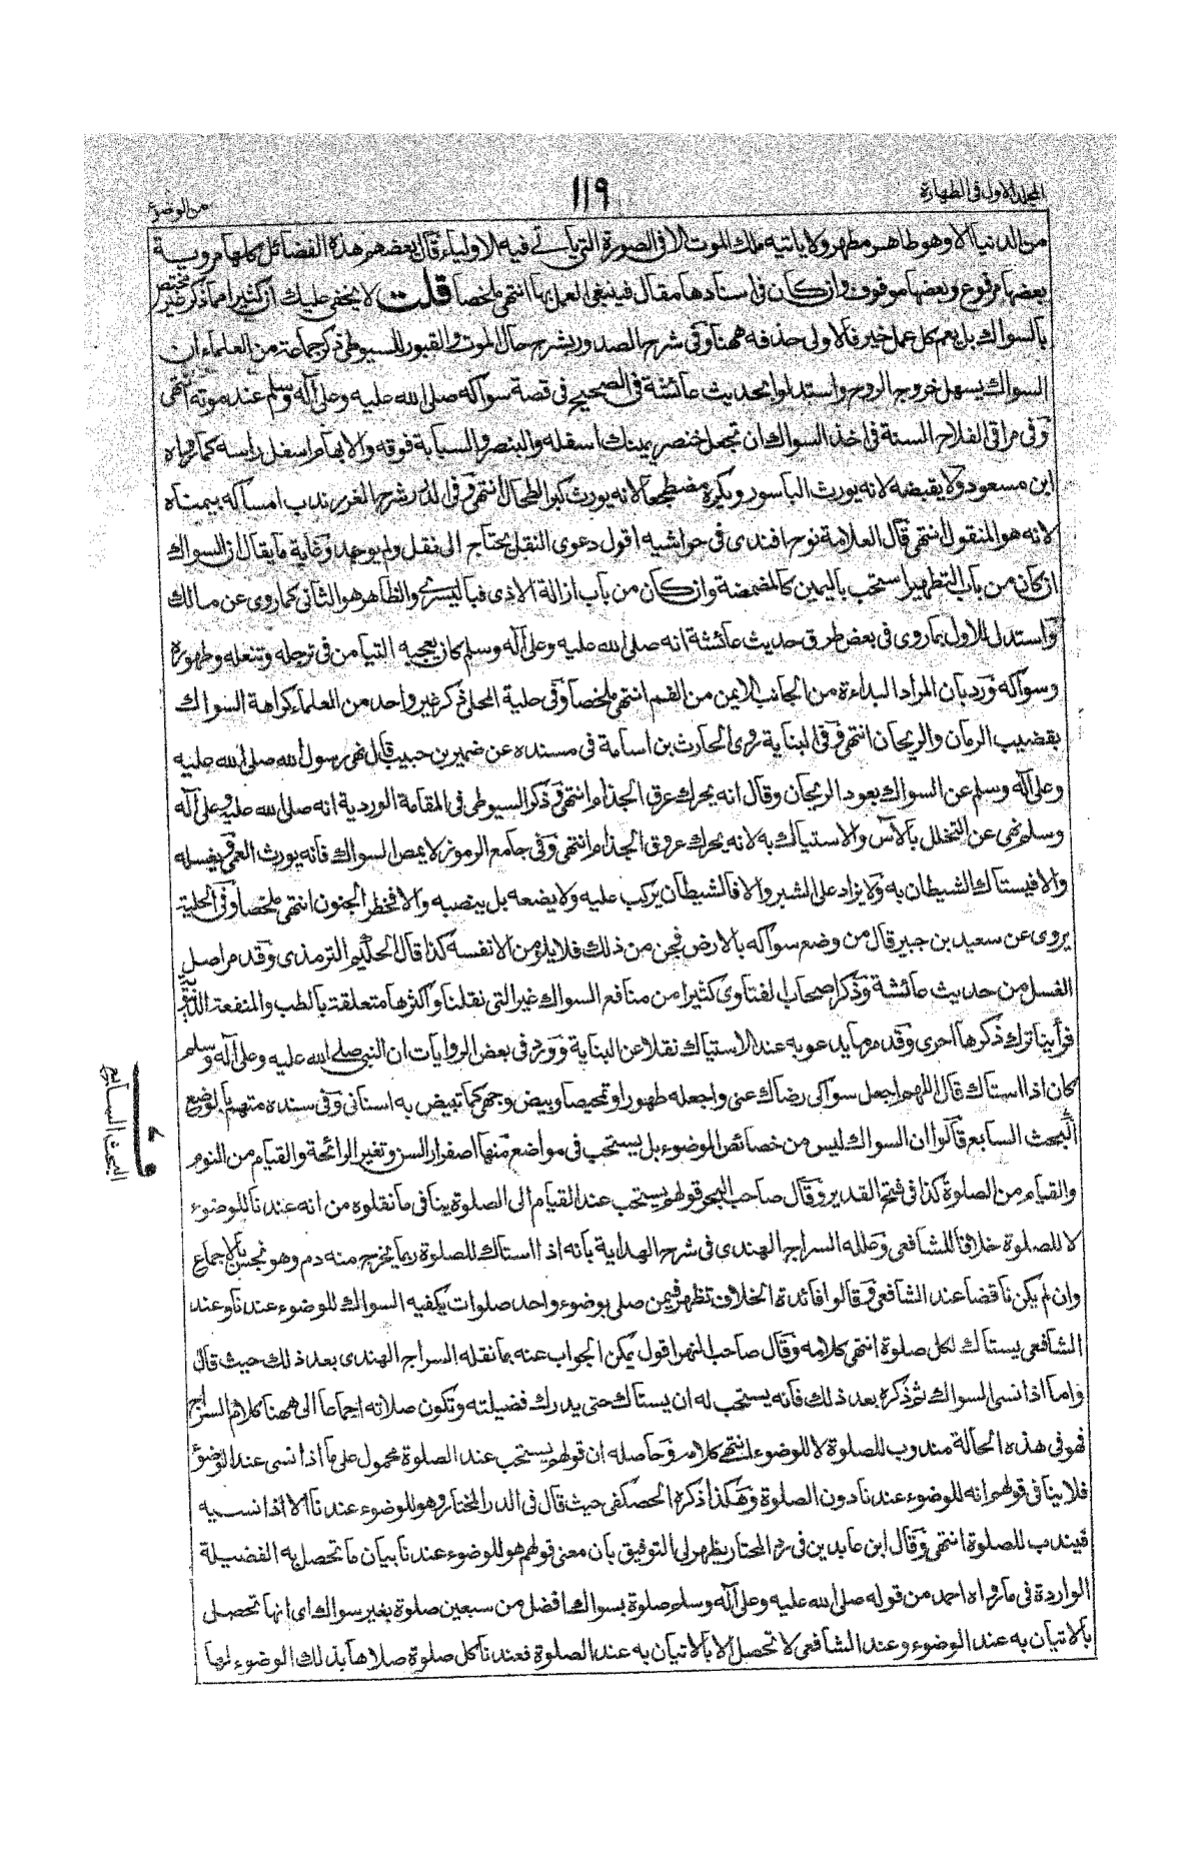 المجلد الاول فى الطهارة
١١٩
من الوضوء
من الدنيا الا وهو طاهر مطهر ولا ياتيه ملك الموت الا فى الصورة التى ياتى فيه الاولياء قال بعضهم هذه الفضائل كلها مروية
بعضها مرفوع وبعضها موقوف وان كان فى اسنادها مقال فينبغى العمل بها انتهى ملخصا قلت لا يخفى عليك ان كثيرا مما ذكر غير مختص
بالسواك بل يعم كل عمل خير فالاولى حذفه ههنا وفى شرح الصدور بشرح حال الموت والقبور للسيوطى ذكر جماعة من العلماء ان
السواك يسهل خروج الروح واستدلوا بحديث عائشة فى الصحيح فى قصة سواكه صلى الله عليه وعلى آله وسلم عند موته انتهى
وفى مراقى الفلاح السنة فى اخذ السواك ان تجعل خنصر يمينك اسفله والبنصر والسبابة فوقه والابهام اسفل راسه كما رواه
ابن مسعود ولا يقبضه لانه يورث الباسور ويكره مضطجعا لانه يورث كبر الطحال انتهى وفى الدرر شرح الغرر يندب امساكه بيمناه
لانه هو المنقول انتهى قال العلامة نوح افندى فى حواشيه اقول دعوى النقل يحتاج الى نقل ولم يوجد وغاية ما يقال ان السواك
ان كان من باب التطهير استحب باليمين كالمضمضة وان كان من باب ازالة الاذى فباليسرى والظاهر هو الثانى كما روى عن مالك
واستدل للاول بما روى فى بعض طرق حديث عائشة انه صلى الله عليه وعلى آله وسلم كان يعجبه التيامن فى ترجله وتنعله وطهوره
وسواكه ورد بان المراد البداءة من الجانب الايمن من الفم انتهى ملخصا وفى حلية المحلى ذكر غير واحد من العلماء كراهة السواك
بقضيب الرمان والريحان انتهى وفى البناية روى الحارث بن اسامة فى مسنده عن ضمير بن حبيب قال نهى رسول الله صلى الله عليه
وعلى آله وسلم عن السواك بعود الريحان وقال انه يحرك عرق الجذام انتهى وذكر السيوطى فى المقامة الوردية انه صلى الله عليه وعلى آله
وسلم نهى عن التخلل بالآس والاستياك به لانه يحرك عروق الجذام انتهى وفى جامع الرموز لا يمص السواك فانه يورث العمى ويغسله
والا فيستاك الشيطان به ولا يزاد على الشبر والا فالشيطان يركب عليه ولا يضعه بل ينصبه والا فخطر الجنون انتهى ملخصا وفى الحلية
يروى عن سعيد بن جبير قال من وضع سواكه بالارض فجن من ذلك فلا يلومن الا نفسه كذا قال الحكيم الترمذى وقد مر اصل
الغسل من حديث عائشة وذكر اصحاب الفتاوى كثيرا من منافع السواك غير التى نقلنا واكثرها متعلقة بالطب والمنفعة
فرأينا ترك ذكرها احرى وقد مر ما يدعو به عند الاستياك نقلا عن البناية وورد فى بعض الروايات ان النبى صلى الله عليه وعلى آله وسلم
كان اذا استاك قال اللهم اجعل سواكى رضاك عنى واجعله طهورا وتمحيصا وبيض وجهى كما تبيض به اسنانى وفى سنده متهم بالوضع
البحث السابع قالوا ان السواك ليس من خصائص الوضوء بل يستحب فى مواضع منها اصفرار السن وتغير الرائحة والقيام من النوم
والقيام من الصلوة كذا فى فتح القدير وقال صاحب البحر قولهم يستحب عند القيام الى الصلوة ينافى ما نقلوه من انه عندنا للوضوء
لا للصلوة خلافا للشافعى وعلله السراج الهندى فى شرح الهداية بانه اذا استاك للصلوة ربما يخرج منه دم وهو نجس بالاجماع
وان لم يكن ناقضا عند الشافعى وقالوا فائدة الخلاف تظهر فيمن صلى بوضوء واحد صلوات يكفيه السواك للوضوء عندنا وعند
الشافعى يستاك لكل صلوة انتهى كلامه وقال صاحب النهر اقول يمكن الجواب عنه بما نقله السراج الهندى بعد ذلك حيث قال
واما اذا نسى السواك ثم ذكره بعد ذلك فانه يستحب له ان يستاك حتى يدرك فضيلته وتكون صلاته اجماعا الى ههنا كلام السراج
فهو فى هذه الحالة مندوب للصلوة لا للوضوء انتهى كلامه وحاصله ان قولهم يستحب عند الصلوة محمول على ما اذا نسى عند الوضوء
فلا ينافى قولهم انه للوضوء عندنا دون الصلوة وهكذا ذكره الحصكفى حيث قال فى الدر المختار وهو للوضوء عندنا الا اذا نسيه
فيندب للصلوة انتهى وقال ابن عابدين فى رد المحتار يظهر لى التوفيق بان معنى قولهم هو للوضوء عندنا بيان ما تحصل به الفضيلة
الواردة فى ما رواه احمد من قوله صلى الله عليه وعلى آله وسلم صلوة بسواك افضل من سبعين صلوة بغير سواك اى انها تحصل
بالاتيان به عند الوضوء وعند الشافعى لا تحصل الا بالاتيان به عند الصلوة فعندنا كل صلوة صلاها بذلك الوضوء لها
البحث السابع